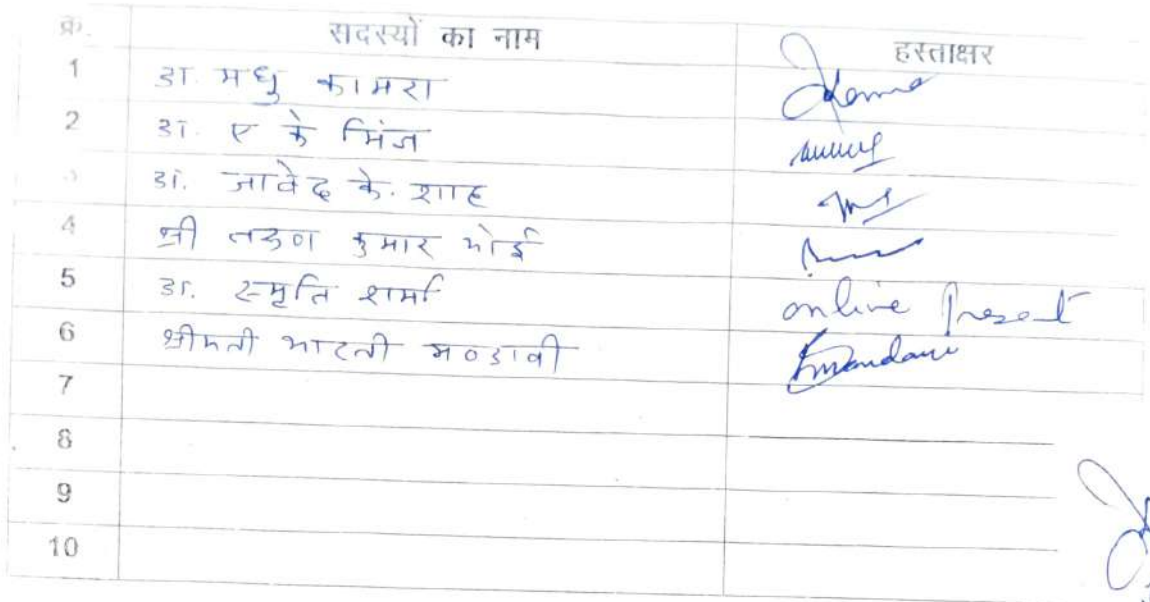 क्र. सदस्यों का नाम हस्ताक्षर
1 डा. मधु कामरा
2 डा. ए के मिंज
3 डा. जावेद के. शाह
4 श्री तरुण कुमार भोई
5 डा. स्मृति शर्मा online Present
6 श्रीमती भारती मण्डावी
7
8
9
10